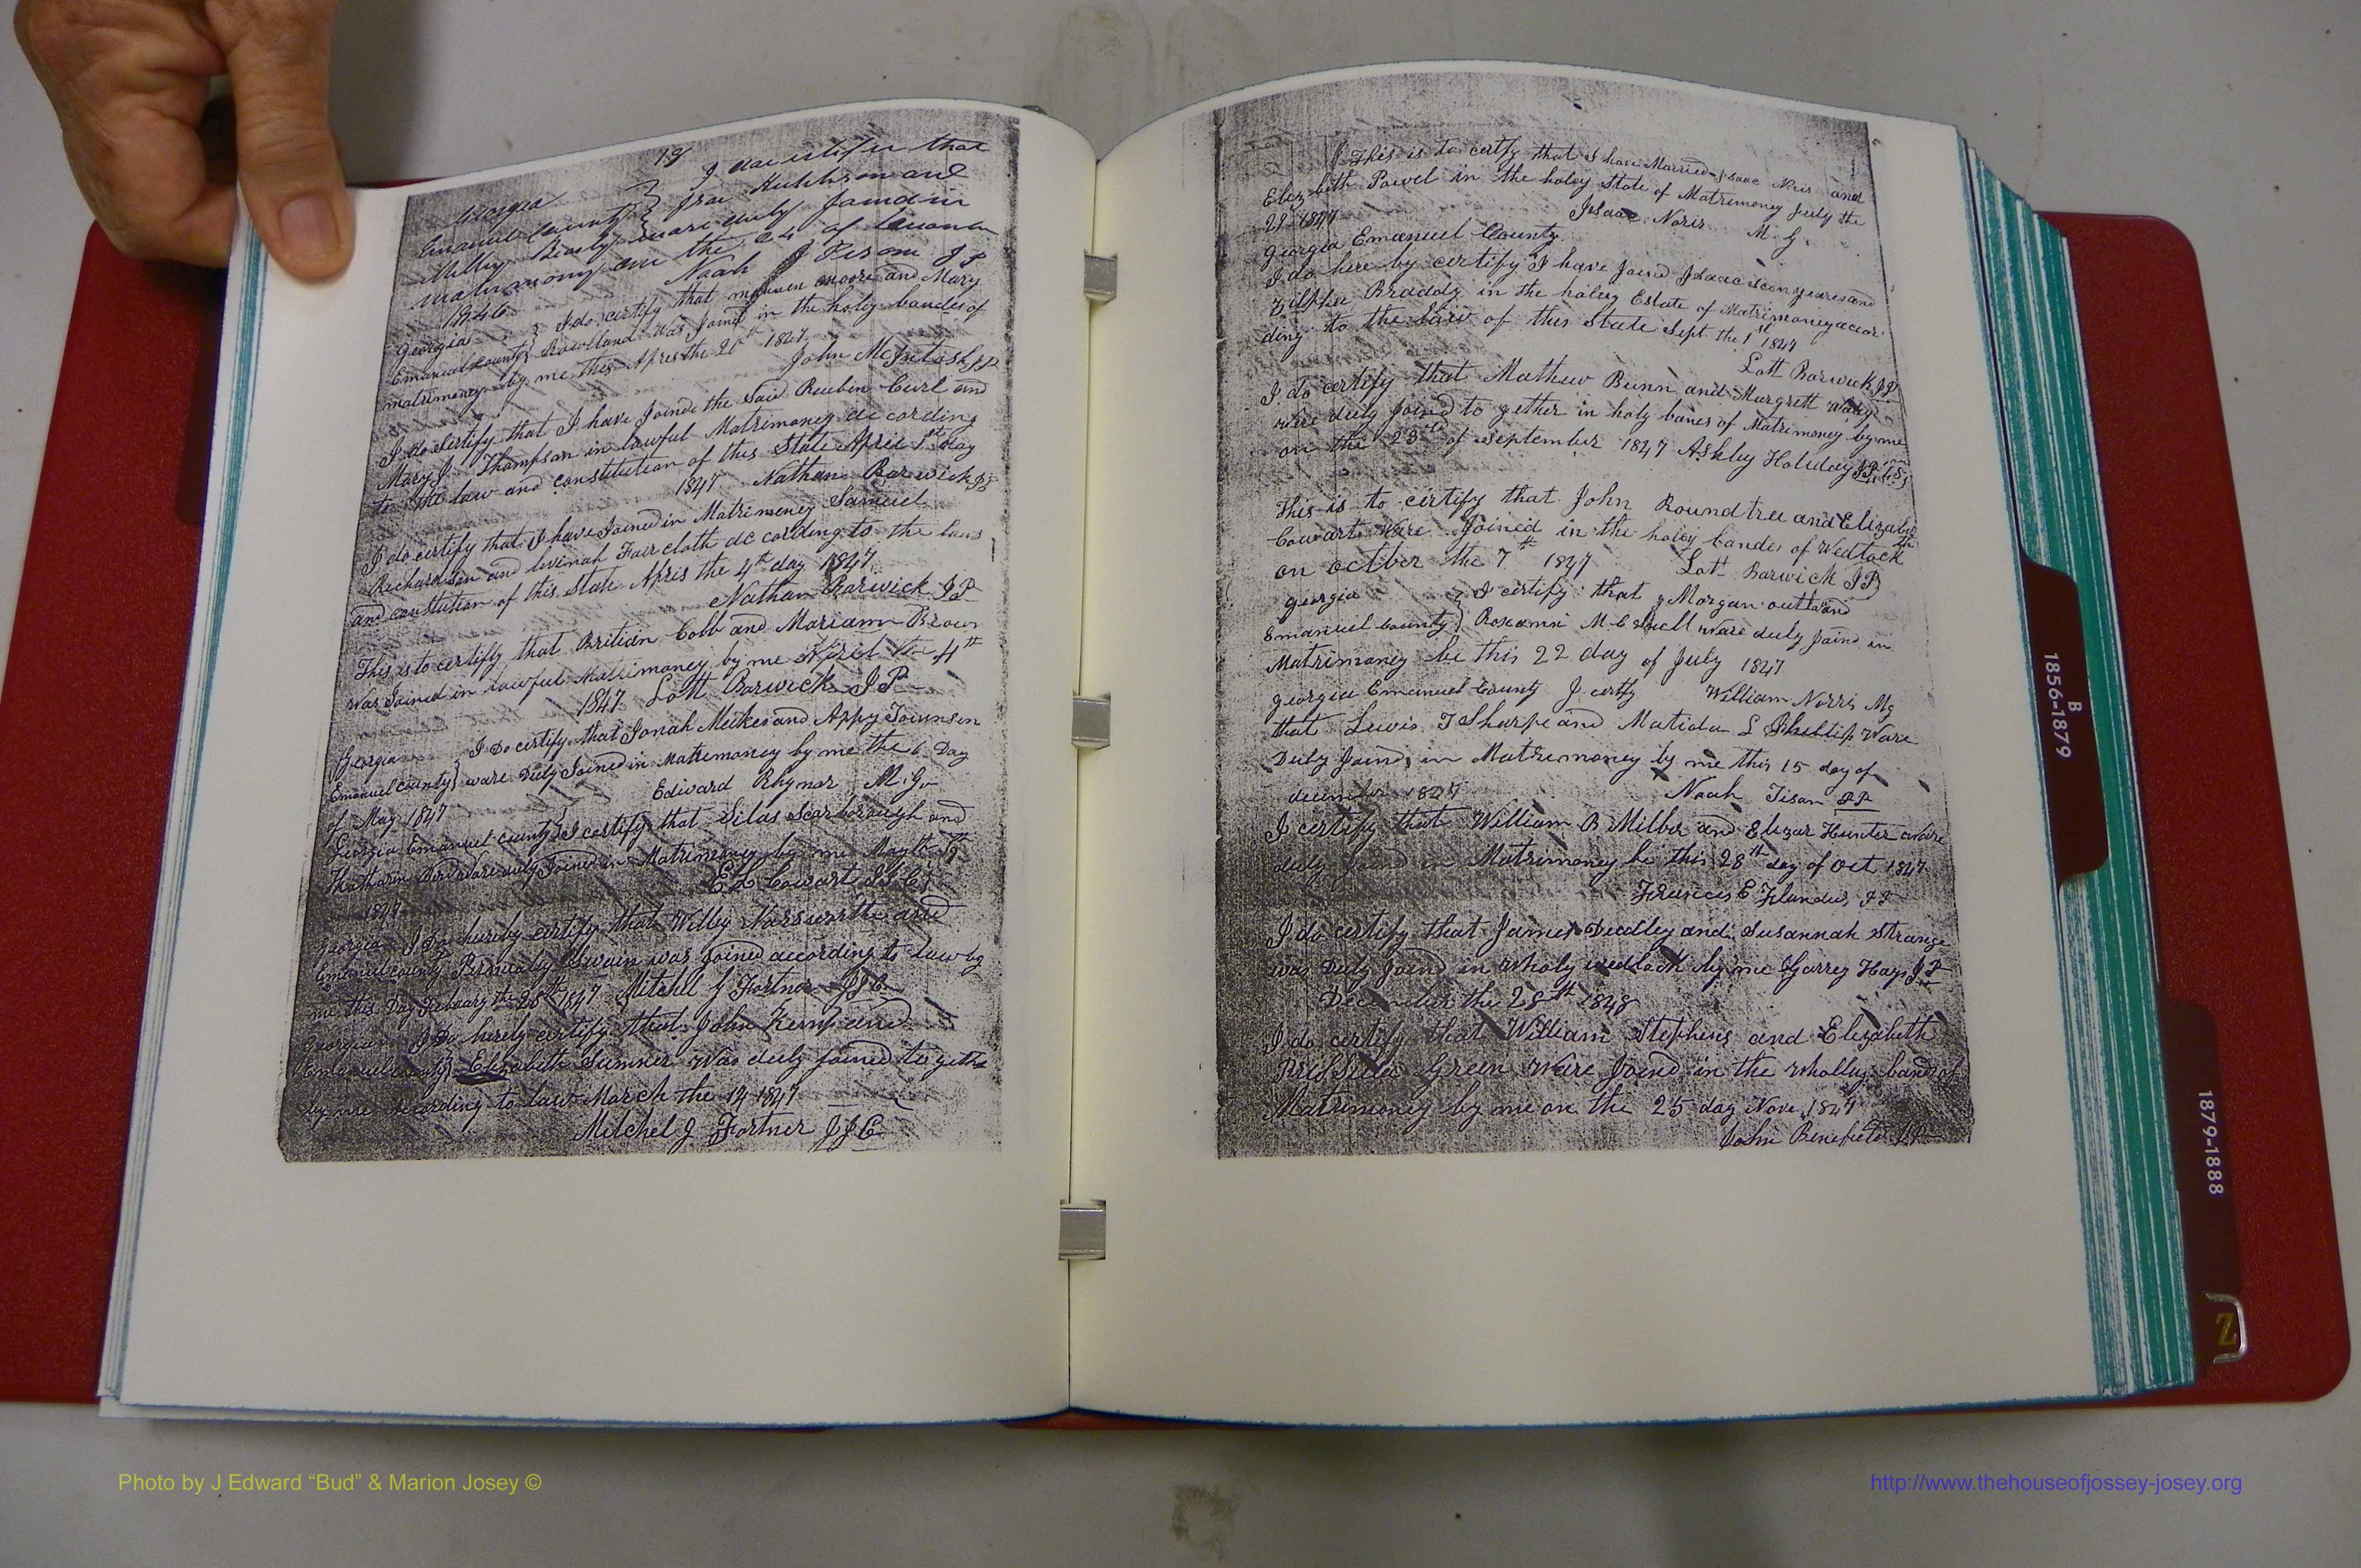 19
Georgia
Emanuel County
I doe certify that
Hutchson and
Milley ware duly Joind in
matrimony on the 24 of
1846 Noah J Tison JP
Georgia
Emanuel County
I do certify that moore and Mary
Rowland was Joind in the holy bandes of
matrimony by me this Apres the 20th 1847
John McIntosh JP
I do Sertify that I have Joinde the Said Reuben Curl and
Mary J Thompson in lawful Matrimoney ac cording
to the law and constitution of this State April 1st day
1847 Nathan Barwick JP
I do certify that I have Joined in Matrimoney Samuel
Richardson and levinah Faircloth ac corldeng to the laws
and constution of this State Apris the 4th day 1847
Nathan Barwick JP
This is to certifiy that Britian Cobb and Mariann Brown
was Joined in lawful Matrimoney by me Aprel the 4th
1847 Lott Barwick JP
Georgia
Emanuel County
I Do certify that Jonah Meekes and Appy Jounson
ware Duly Joined in Matremoney by me the 6 Day
of May 1847 Edward Rhyner M.G.
Georgia Emanuel County I certify that Silas Scarborough and
ware duly Joined in Matrimoney by me May the 9th
1847
Georgia I Do hereby certify that Willey and
Emanuel County Swain was joined according to law by
me this Day Febuary the 28th 1847 Mitchel J Fortner JJC
Georgia I Do hereby certify that John Kemp and
Emanuel County Elizabeth Sumner Was duly joined to geth
by me according to law March the 14 1847
Mitchel J Fortner JJC
This is to certfy that I have Married Isaac and
Elezebeth Powel in the holey State of Matrimoney July the
29 1847 Isaac Noris M.G.
georgia Emanuel County
I do here by certify I have Joind Isaac and
Zilpha Braddy in the holey Estate of Matrimoney accor
ding to the law of this State Sept the 1st 1847
Lott Barwick JP
I do certify that Mathew Bunn and Margrett
were duly Joind to gether in holy banes of Matrimoney by me
on the 23rd of September 1847 Ashley Holiday JP
This is to certify that John Roundtree and Elizabeth
Cowart Ware Joined in the holey bandes of Wedlock
on octber the 7th 1847 Lott Barwick JP
georgia
Emanuel County
I certify that Morgan outland
Roxann ware duly Joind in
Matrimoney be this 22 day of July 1847
georgia Emanuel County I certfy William Norris Mg
that Lewis T Sharpe and Matilda L Phillip Ware
Duly Joind in Matrimoney by me this 15 day of
december 1847 Noah Tison JP
I certify that William B Milber and Elizar Hunter ware
duly Joind in Matrimoney be this 28th day of oct 1847
Francces E Flanders JP
I do certify that James Dudley and Susannah Strange
was Duly Joind in wholy wedlock by me Garrey Hays JP
December the 28th 1848
I do certify that William Stephins and Elizabeth
Green Ware Joind in the wholley band of
Matrimoney by me on the 25 day Nove 1847
John Benefield JP
B
1856-1879
1879-1888
Z
Photo by J Edward “Bud” & Marion Josey ©
http://www.thehouseofjossey-josey.org